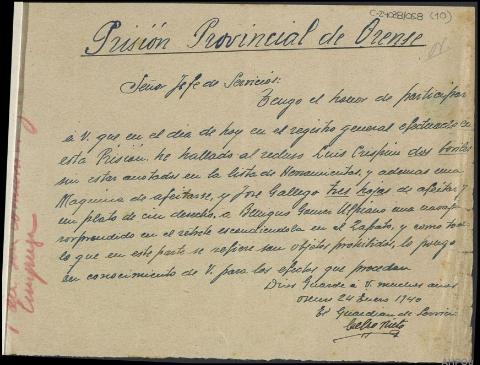 C-24028/058 (10)
Prisión Provincial de Orense
Señor Jefe de Servicios:
Tengo el honor de participar
a V. que en el dia de hoy en el registro general efectuado en
esta Prisión. he hallado al recluso Luis Crespini dos
sin estar anotados en la lista de Herramientas, y ademas una
Maquina de afeitarse, y José Gallego tres hojas de afeitar y
un plato de a Gomez una navaja
sorprendido en el escondiendola en el zapato, y como todo
lo que en este parte se refiere son objetos prohibidos, lo pongo
en conocimiento de V. para los efectos que procedan
Dios Guarde a V. muchos años
Orense 24 Enero 1940
El Guardian de Servicio
Celso Nieto